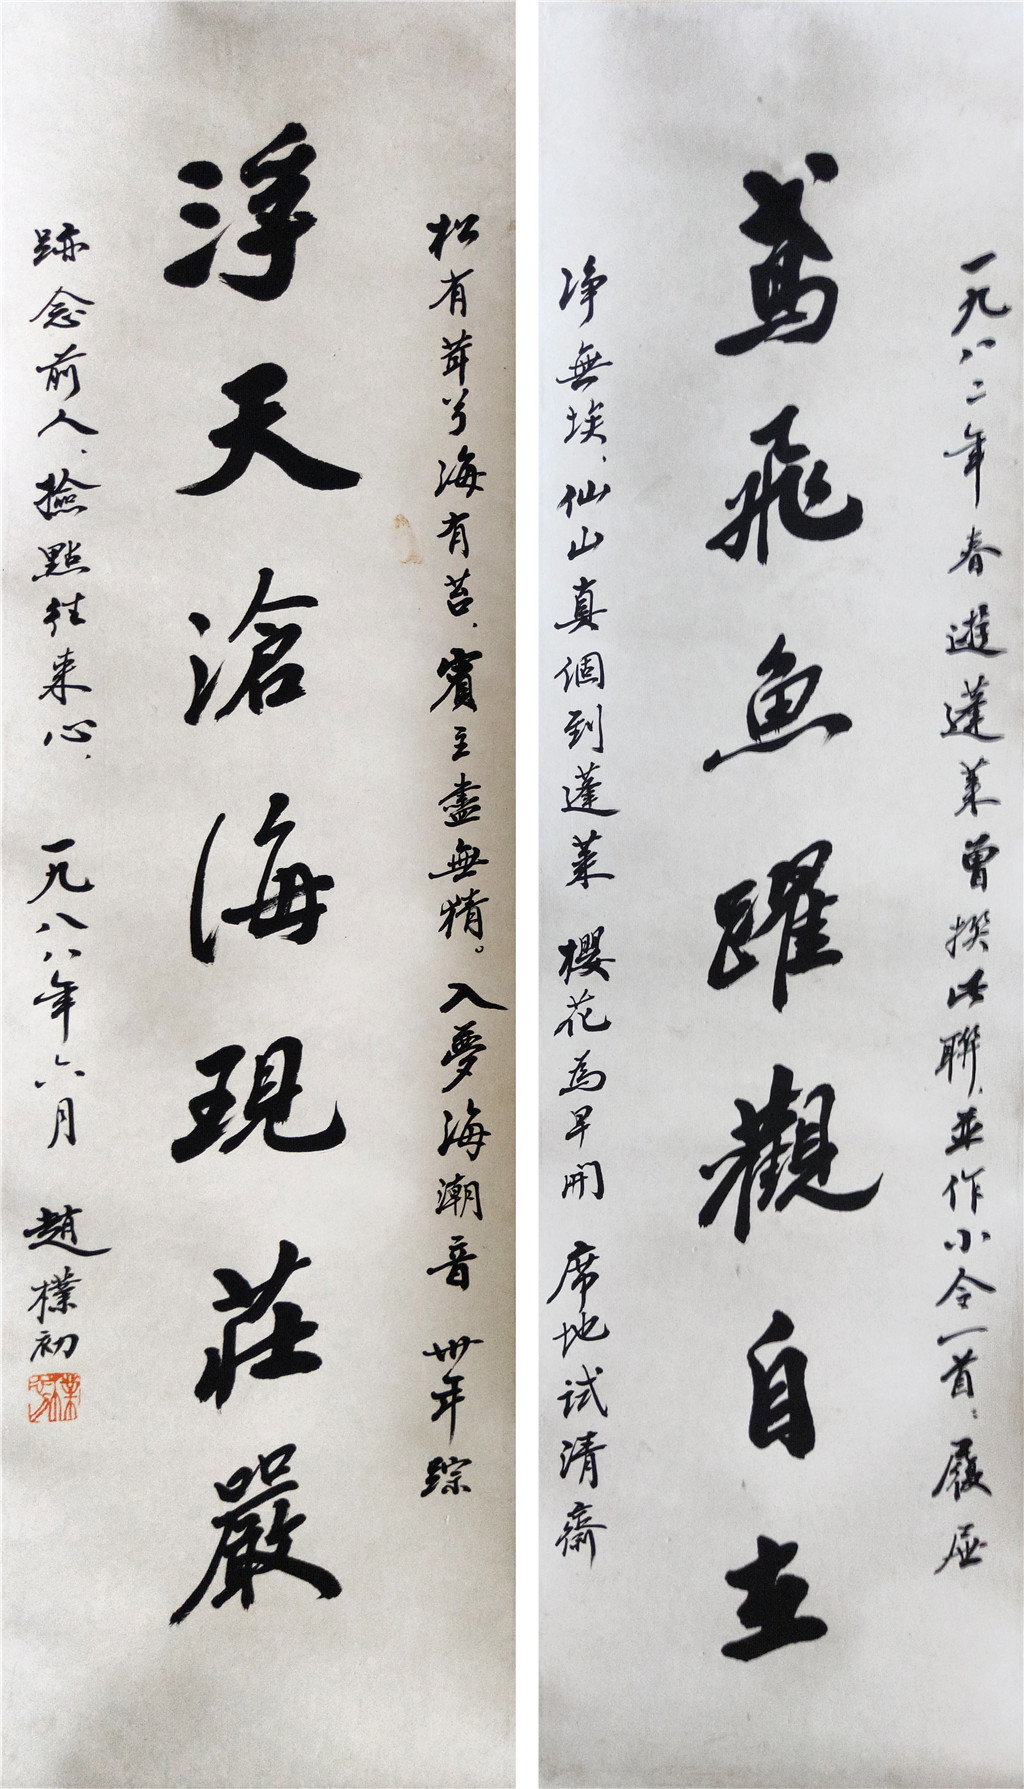 一九八二年春遊蓬莱曾撰此聯,並作小令一首:履屐
鳶飛魚躍觀自在
净無埃,仙山真個到蓬莱 櫻花為早開 席地試清齋
松有茸兮海有苔,賓主盡無猜。入夢海潮音 卅年踪
浮天滄海現莊嚴
跡念前人,撿點往来心, 一九八八年六月 趙樸初
樸初